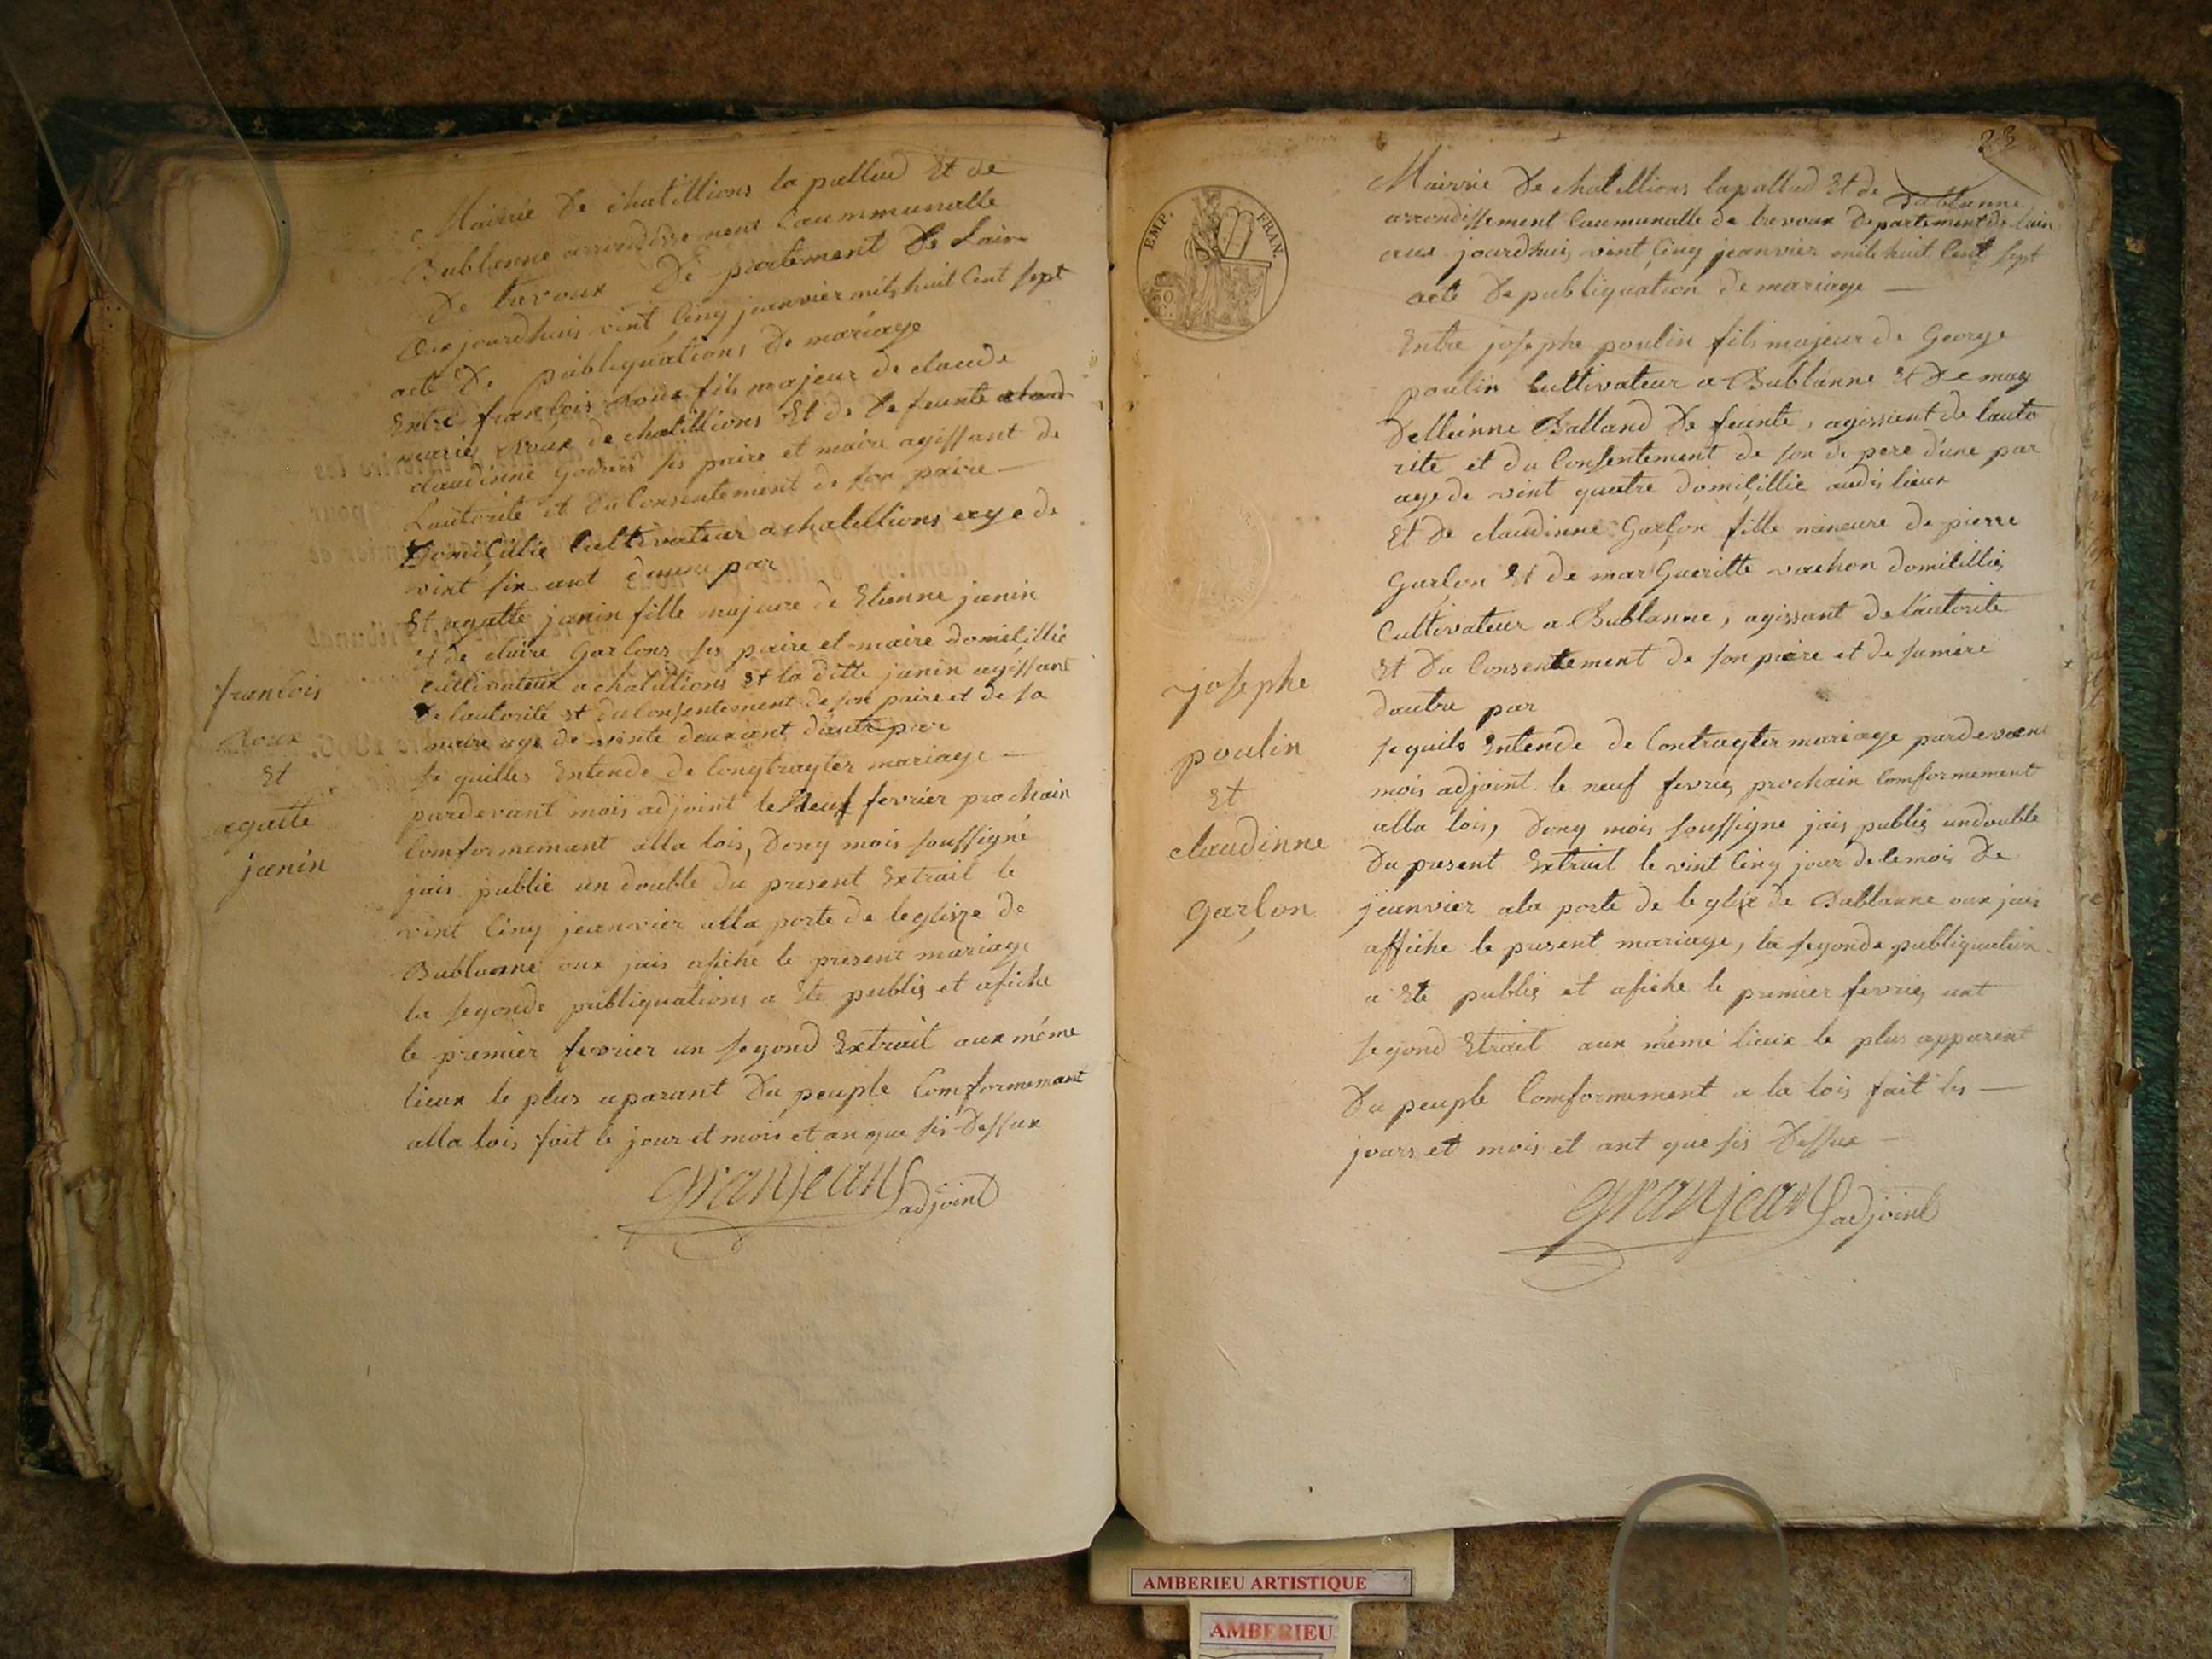 Mairrie De chatillions la pallud Et de
Bublanne arrondissement Caummunalle
De trevoux De partement De Lain
aux jourdhuis vint Cinq janvier mils huit Cent sept
acte De publiquations De mariage
Entre francois Roux fils majeur de claude
marie Roux de chatillions Et de De feunte
claudinne Godard ses paire et maire agissant de
Lautorité et Du Consentement de son paire —
Domicillié Cultivateur a chatillions age de
vint six ant dunne par
Et agatte janin fille majeure de Etienne janin
Et de claire Garlons ses paire et maire domicillié
cultivateur a chatillions Et la ditte janin agissant
De lautorité et du Consentement de son paire et de sa
maire age de vinte deux ant dautre par
se quilles Entende de Congtragter mariage —
pardevant mois adjoint le Neuf fevrier prochain
Comformemant alla lois, Donq mois soussigné
jais publié un double du present Extrait le
vint Cinq jeanvier alla porte de leglisze de
Bublanne oux jais afiché le present mariage
la segonde publiquations a Ete publiş et afiche
le premier fevrier un segond Extrait aux méme
lieux le plus aparant Du peuple Comformemant
alla lois fait le jour et mois et an que sis Dessux
granjean adjoint
francois
Roux
Et
agatte
janin
23
Mairrie De chatillions lapallud Et de Bublanne
arrondissement Caumunalle de trevoux Departement de lain
aux jourdhuis vint Cinq jeanvier mils huit Cent sept
acte De publiquation de mariage —
EMP. FRAN.
50
C.
Entre josephe poulin fils majeur de George
poulin Cultivateur a Bublanne Et De mag
Delleinne Balland De feunte, agissant de lauto
rité et du Consentement de son de pere d'une par
age de vint quatre domicillié audis lieux
Et De claudinne Garlon fille mineure de pierre
Garlon Et de marGueritte vachon domicilliés
Cultivateur a Bublanne, agissant De lautorité
Et Du Consentement de son paire et de samére
dautre par
se quils Entende de Contragter mariage pardevant
mois adjoint le neuf fevrié prochain Comformement
alla lois, Donq mois soussigne jais publiş undouble
Du present Extrait le vint Cinq jour de lemois De
jeanvier ala porte de leglise de Bublanne oux jais
affiche le present mariage, la segonde publiquation
a Ete publiş et afiche le premier fevrié, unt
segond Etrait aux méme lieux le plus apparent
Du peuple Comformement a la lois fait les —
jours et mois et ant que sis Dessux —
granjean adjoint
josephe
poulin
Et
claudinne
Garlon
AMBERIEU ARTISTIQUE
AMBERIEU